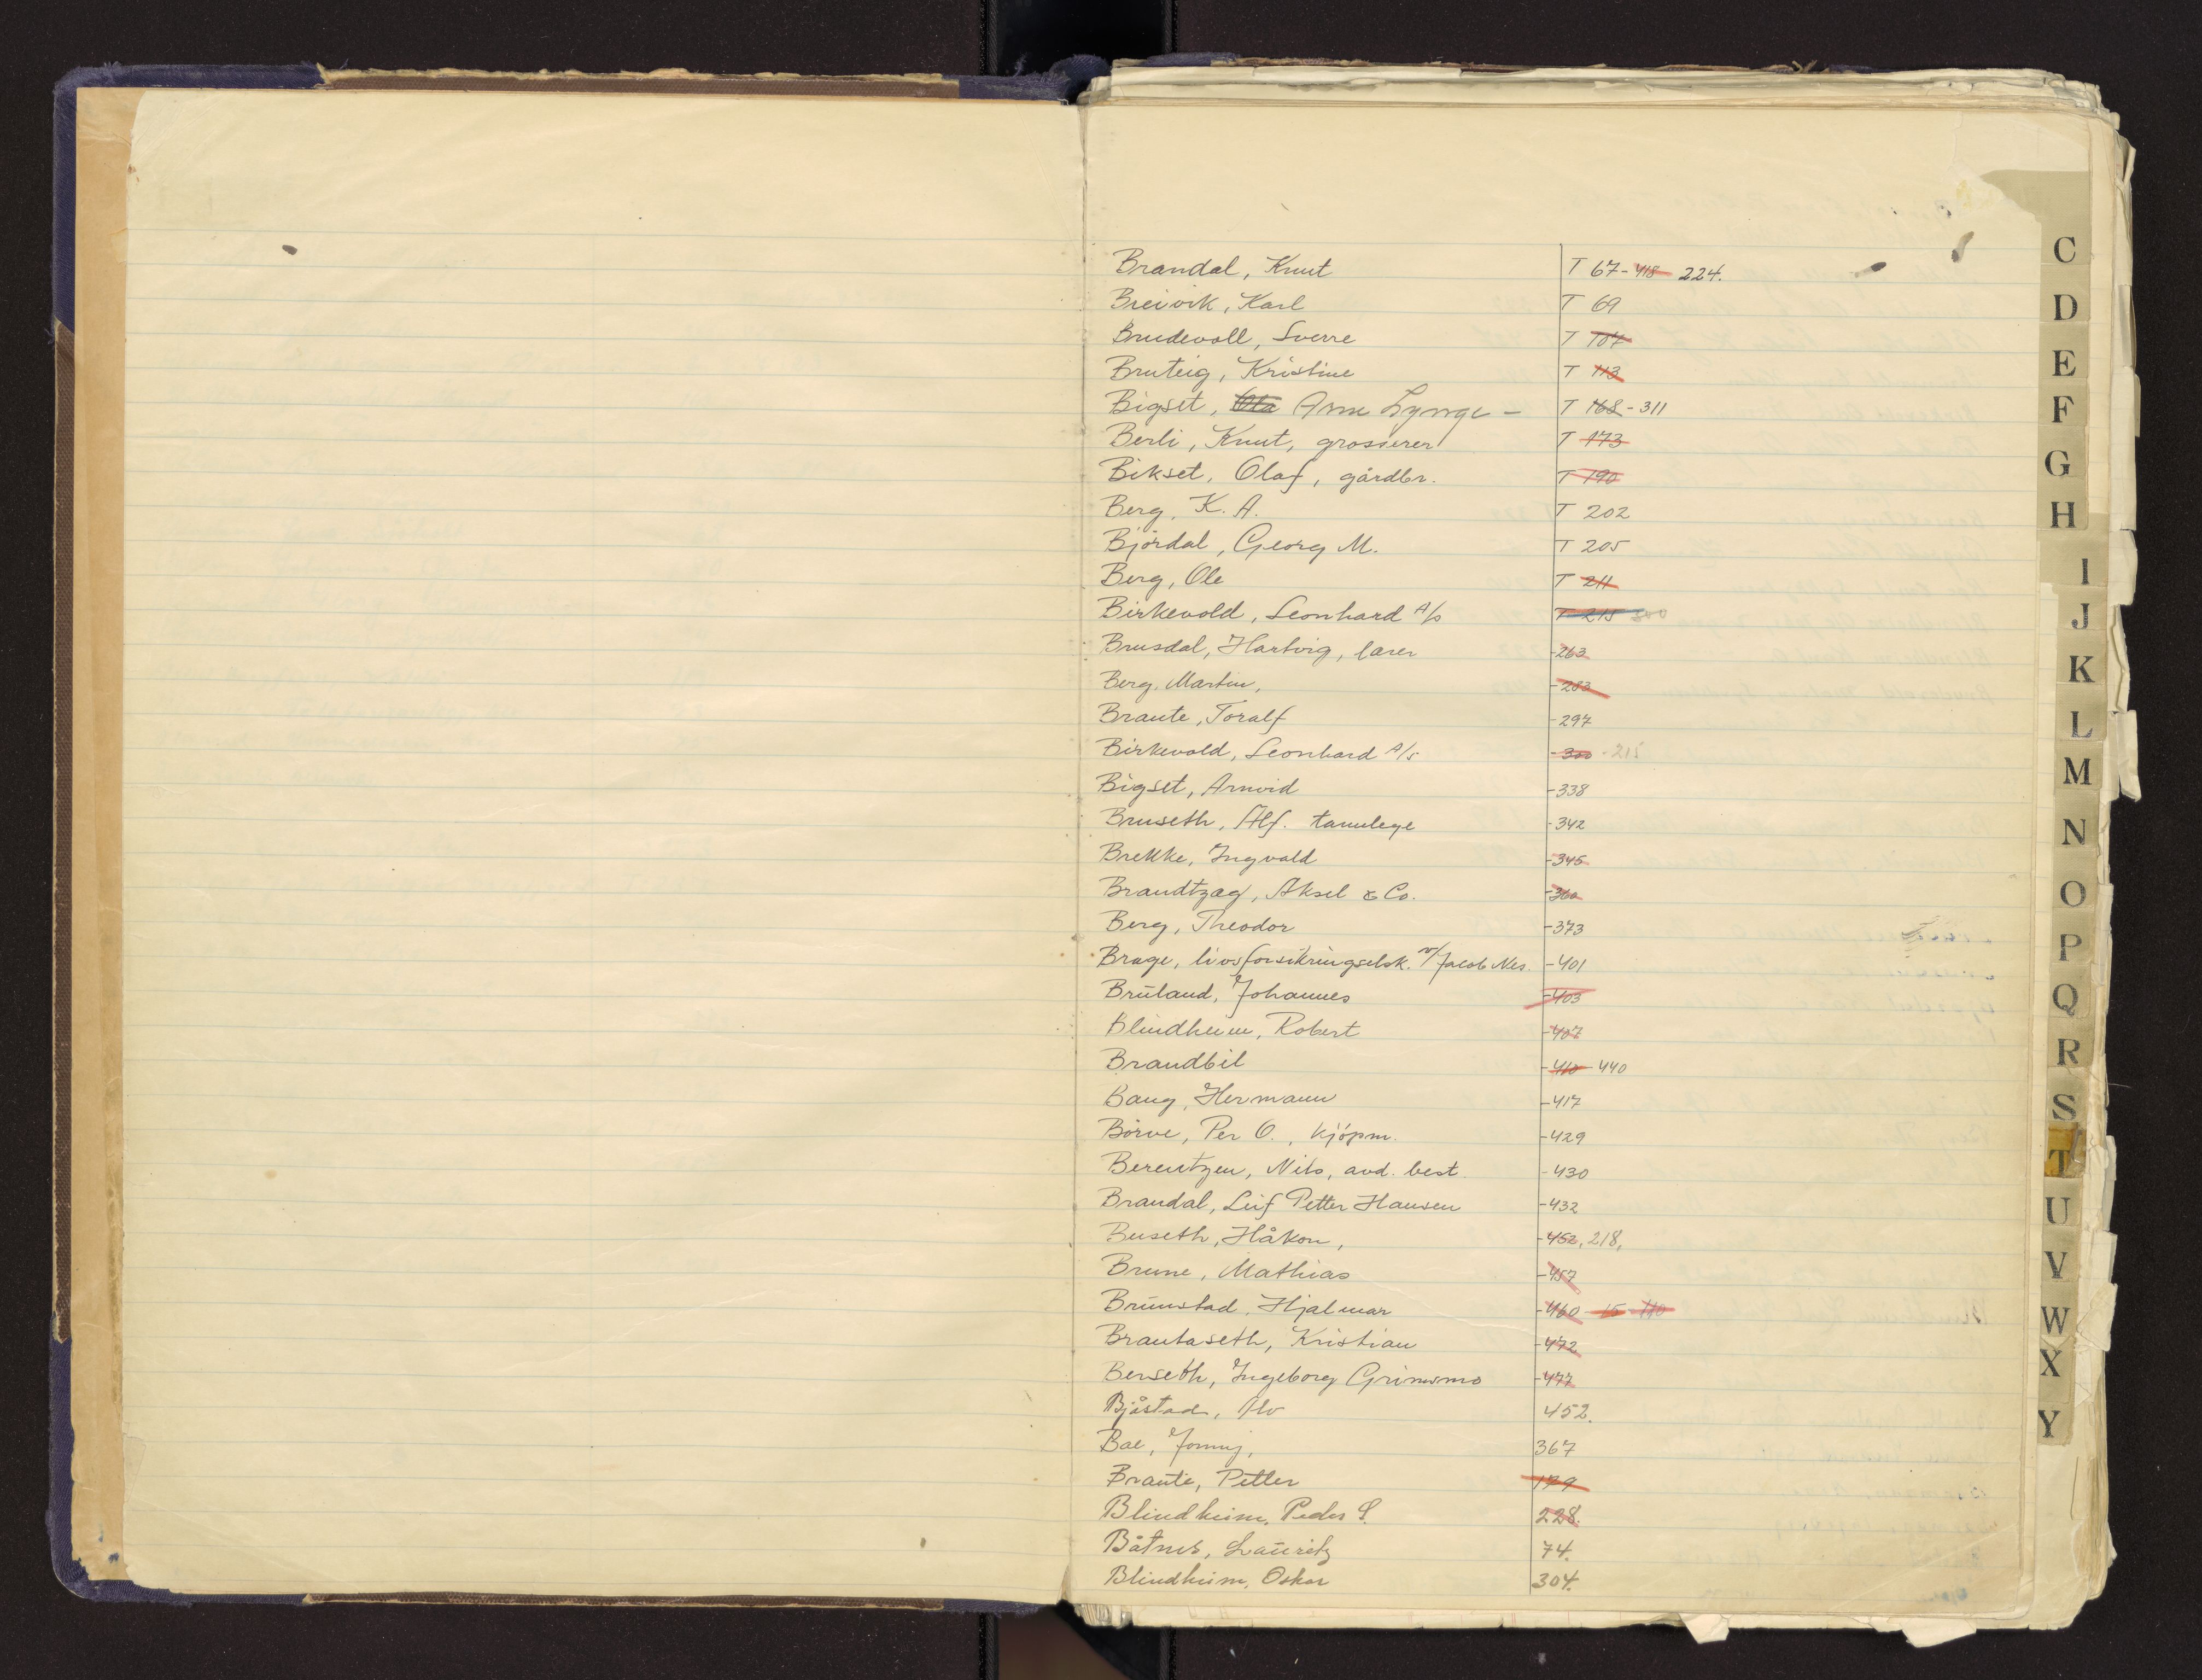 Brandal, Knut T 67-418 224.
Breivik, Karl T 69
Brudevoll, Sverre T 104
Bruteig, Kristine T 113
Bigset, Ola Arne Lynge - T 168-311
Berli, Knut, grosserer T 173
Bikset, Olaf, gårdbr. T 190
Berg, K. A. T 202
Bjørdal, Georg M. T 205
Berg, Ole T 211
Birkevold, Leonhard A/s T 215 300
Brusdal, Hartvig, lærer -263
Berg, Martin, -283
Braute, Toralf -297
Birkevold, Leonhard A/s -300 -215
Bigset, Arnvid -338
Bruseth, Alf. tannlege -342
Brekke, Ingvald -345
Brandtzæg, Aksel & Co. -360
Berg, Theodor -373
Brage, livsforsikringselsk. v/Jacob Nes. -401
Bruland, Johannes -403
Blindheim, Robert -407
Brandbil -410 440
Bang, Hermann -417
Børve, Per O., kjøpm. -429
Berentzen, Nils, avd. best. -430
Brandal, Leif Petter Hansen -432
Buseth, Håkon, -452, 218,
Brune, Mathias -457
Brunstad, Hjalmar -460 - 15 - 110
Brautaseth, Kristian -472
Berseth, Ingeborg Grimsmo -477
Bjåstad, Alv 452.
Bae, Jonny, 367
Braute, Petter 179
Blindheim, Peder P. 228.
Båtnes, Lauritz 74.
Blindheim, Oskar 304.
C
D
E
F
G
H
I
J
K
L
M
N
O
P
Q
R
S
T
U
V
W
X
Y